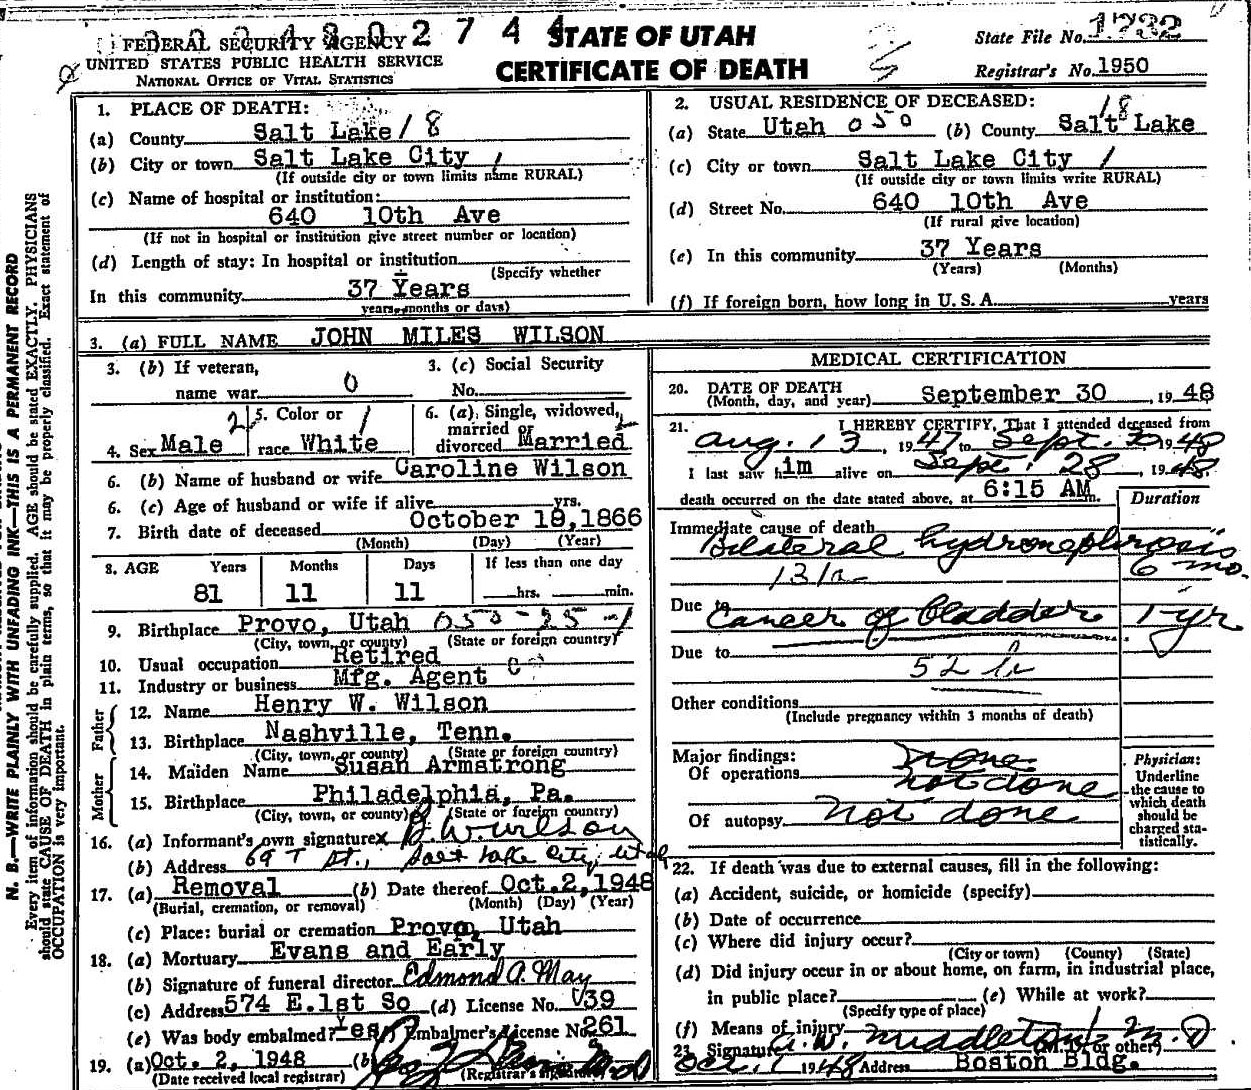 2 7 4 4 STATE OF UTAH
CERTIFICATE OF DEATH
FEDERAL SECURITY AGENCY
UNITED STATES PUBLIC HEALTH SERVICE
NATIONAL OFFICE OF VITAL STATISTICS
State File No.
Registrar's No. 1950
N. B.—WRITE PLAINLY WITH UNFADING INK—THIS IS A PERMANENT RECORD
Every item of information should be carefully supplied. AGE should be stated EXACTLY. PHYSICIANS
should state CAUSE OF DEATH in plain terms, so that it may be properly classified. Exact statement of
OCCUPATION is very important.
1. PLACE OF DEATH:
(a) County Salt Lake / 8
(b) City or town Salt Lake City /
(If outside city or town limits name RURAL)
(c) Name of hospital or institution:
640 10th Ave
(If not in hospital or institution give street number or location)
(d) Length of stay: In hospital or institution
(Specify whether
In this community 37 Years
years, months or days)
2. USUAL RESIDENCE OF DECEASED:
18
(a) State Utah 050 (b) County Salt Lake
(c) City or town Salt Lake City /
(If outside city or town limits write RURAL)
(d) Street No. 640 10th Ave
(If rural give location)
(e) In this community 37 Years
(Years) (Months)
(f) If foreign born, how long in U. S. A. years
3. (a) FULL NAME JOHN MILES WILSON
3. (b) If veteran,
name war 0
3. (c) Social Security
No.
4. Sex Male 2
5. Color or /
race White
6. (a) Single, widowed,
married or
divorced Married 2
6. (b) Name of husband or wife Caroline Wilson
6. (c) Age of husband or wife if alive yrs.
7. Birth date of deceased October 19, 1866
(Month) (Day) (Year)
8. AGE Years Months Days If less than one day
81 11 11 hrs. min.
9. Birthplace Provo, Utah
(City, town, or county) (State or foreign country)
10. Usual occupation Retired
11. Industry or business Mfg. Agent
Father
12. Name Henry W. Wilson
13. Birthplace Nashville, Tenn.
(City, town, or county) (State or foreign country)
Mother
14. Maiden Name Susan Armstrong
15. Birthplace Philadelphia, Pa.
(City, town, or county) (State or foreign country)
16. (a) Informant's own signature X B. W. Wilson
(b) Address 69 T St., Salt Lake City, Utah
17. (a) Removal (b) Date thereof Oct. 2, 1948
(Burial, cremation, or removal) (Month) (Day) (Year)
(c) Place: burial or cremation Provo, Utah
18. (a) Mortuary Evans and Early
(b) Signature of funeral director Edmond A. May
(c) Address 574 E. 1st So (d) License No. 39
(e) Was body embalmed? Yes Embalmer's License No. 261
19. (a) Oct. 2, 1948 (b)
(Date received local registrar) (Registrar's signature)
MEDICAL CERTIFICATION
20. DATE OF DEATH
(Month, day, and year) September 30, 1948
21. I HEREBY CERTIFY, That I attended deceased from
Aug. 13, 1947 to Sept. 30 1948
I last saw him alive on Sept. 28, 1948.
death occurred on the date stated above, at 6:15 AM m.
Duration
Immediate cause of death
Bilateral hydronephrosis
6 mo.
Due to
Cancer of bladder 1 yr
Due to
52
Other conditions
(Include pregnancy within 3 months of death)
Major findings:
none
Of operations not done
Of autopsy not done
Physician:
Underline
the cause to
which death
should be
charged sta-
tistically.
22. If death was due to external causes, fill in the following:
(a) Accident, suicide, or homicide (specify)
(b) Date of occurrence
(c) Where did injury occur?
(City or town) (County) (State)
(d) Did injury occur in or about home, on farm, in industrial place,
in public place? (e) While at work?
(Specify type of place)
(f) Means of injury
23. Signature A. W. Middleton M.D
(M. D. or other)
Oct. 1 1948 Address Boston Bldg.